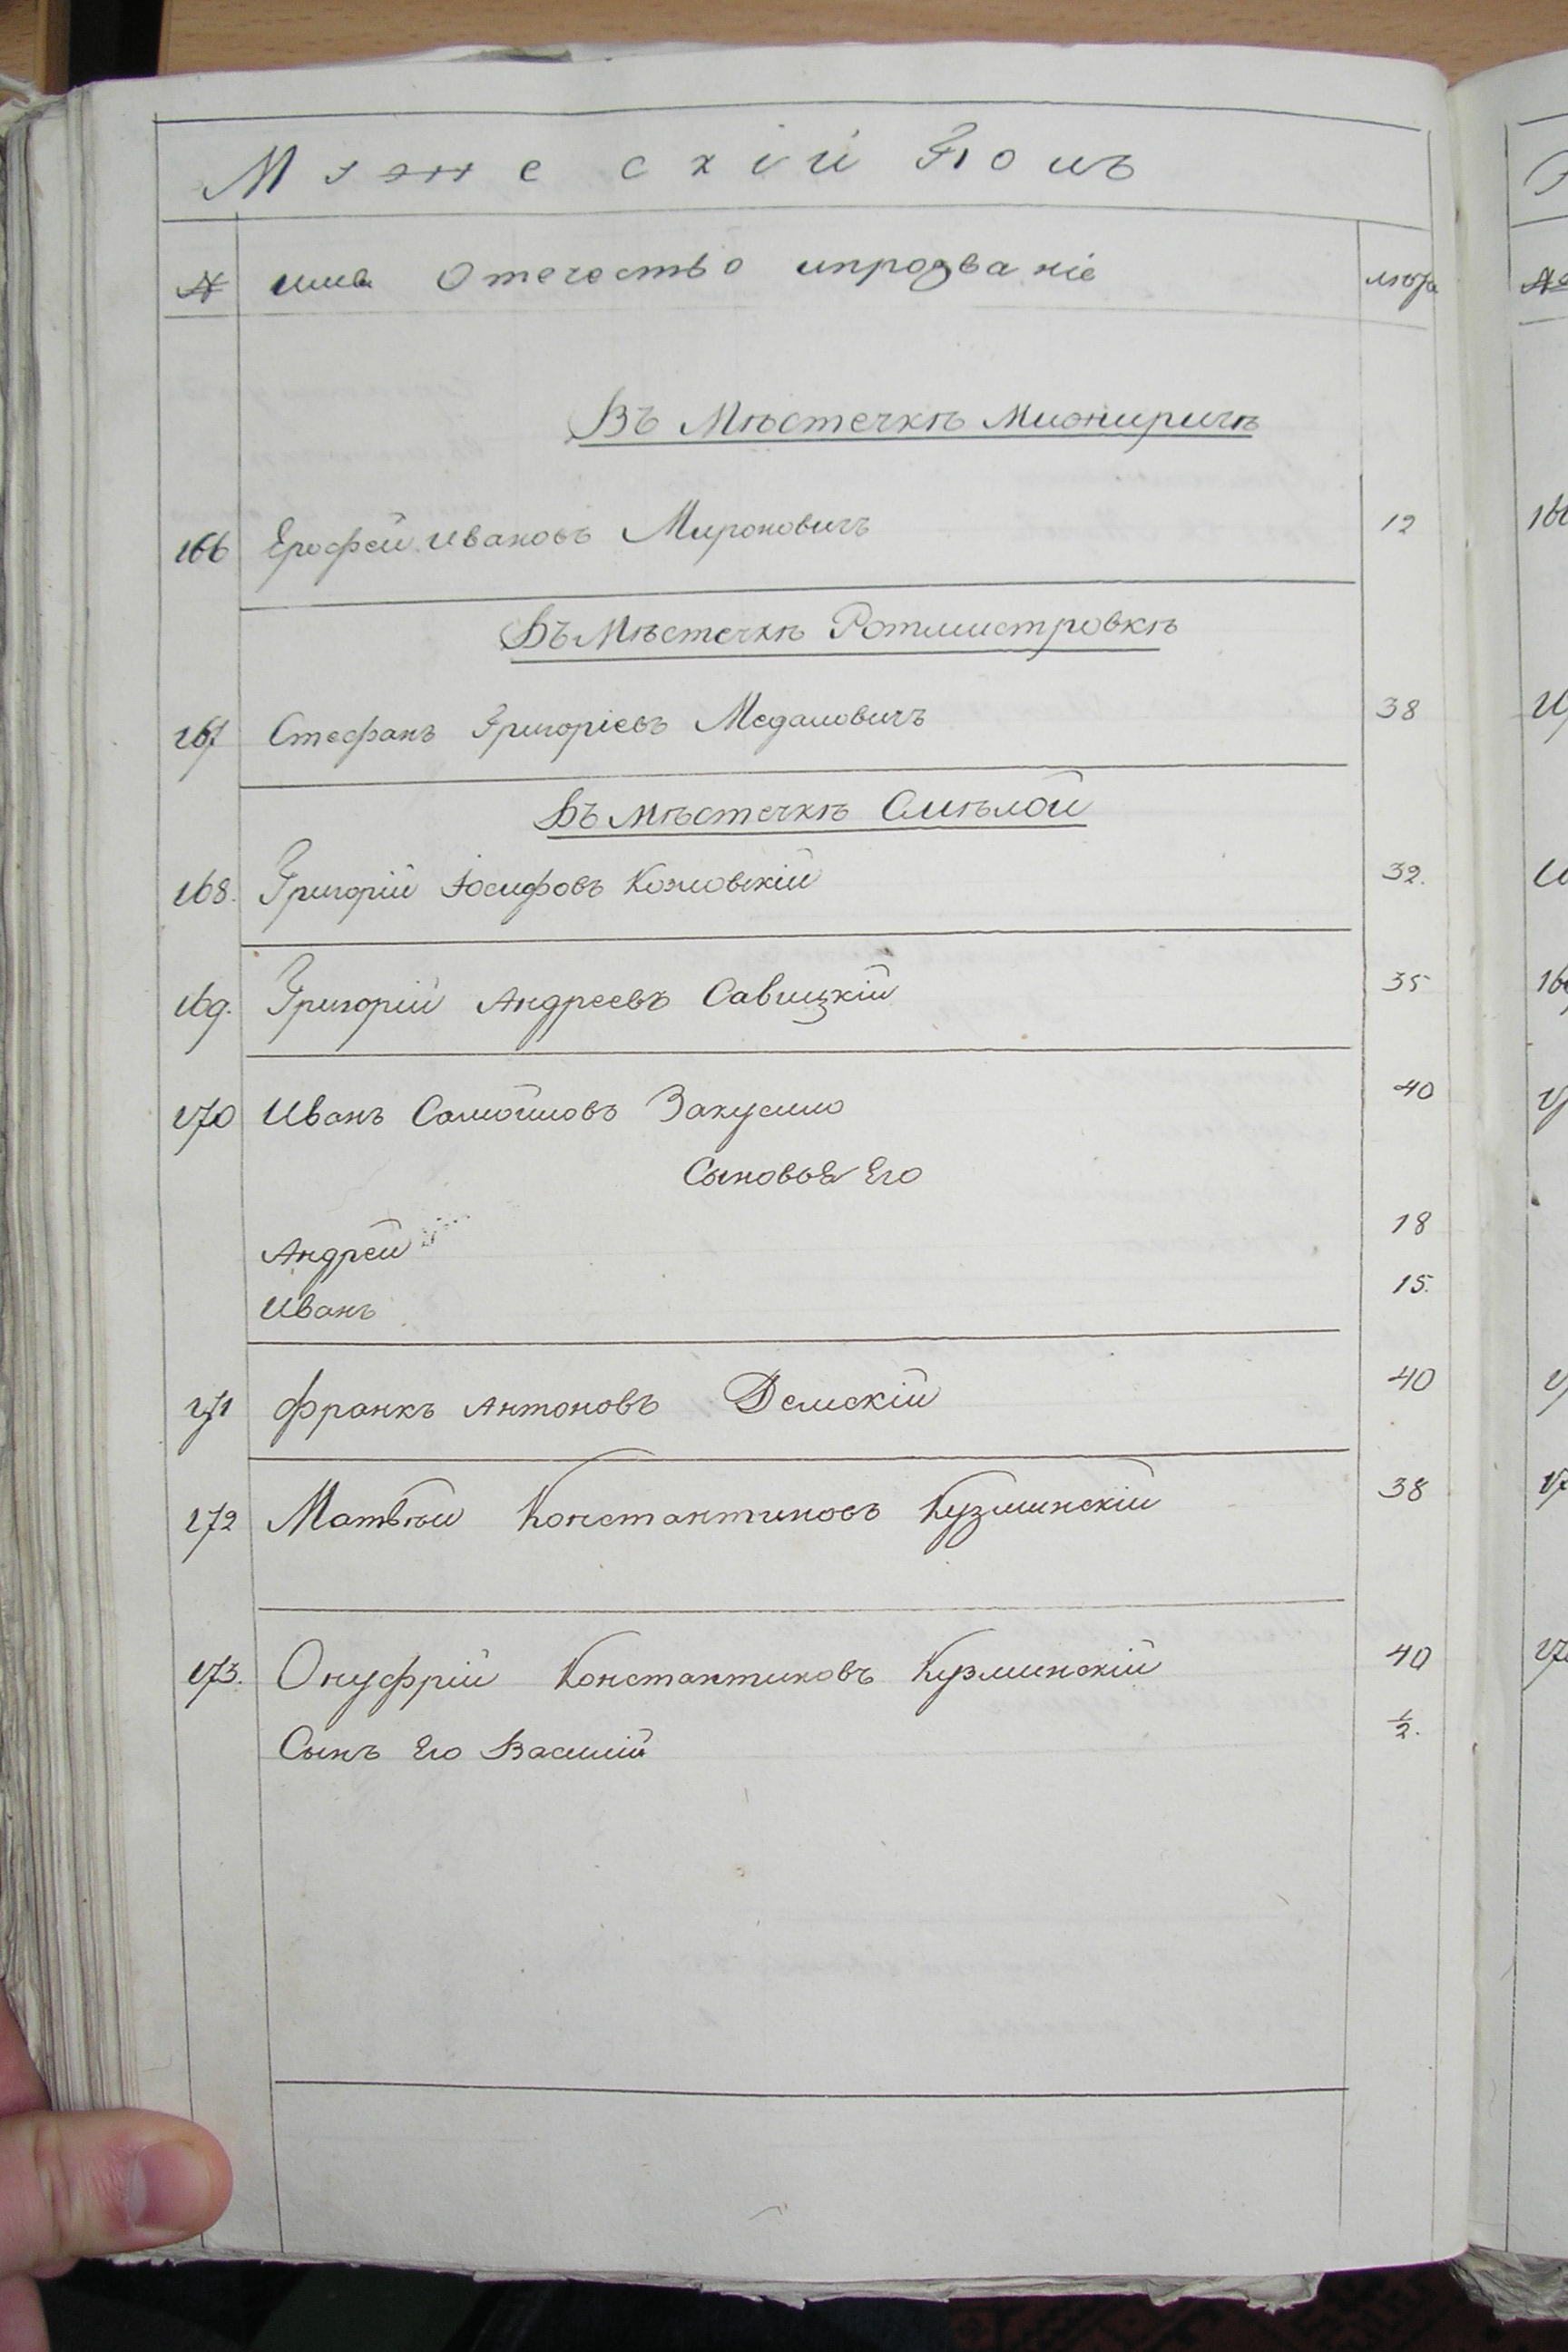 Мужескій Полъ
№ имя Отечество ипрозваніе лѣта
Въ Мѣстечкѣ Межиричѣ
166 Ерофей Ивановъ Мироновичъ 12
Въ Мѣстечкѣ Ротмистровкѣ
167 Стефанъ Григоріевъ Медаловичъ 38
Въ мѣстечкѣ Смѣлой
168. Григорій Іосифовъ Козловскій 32.
169. Григорій Андреевъ Савицкій 35
170 Иванъ Самойловъ Закусило 40
Сыновья Его
Андрей 18
Иванъ 15.
171 Франкъ Антоновъ Демскій 40
172 Матвѣй Константиновъ Кузминскій 38
173. Онуфрій Константиновъ Кузминскій 40
Сынъ Его Василій ½.